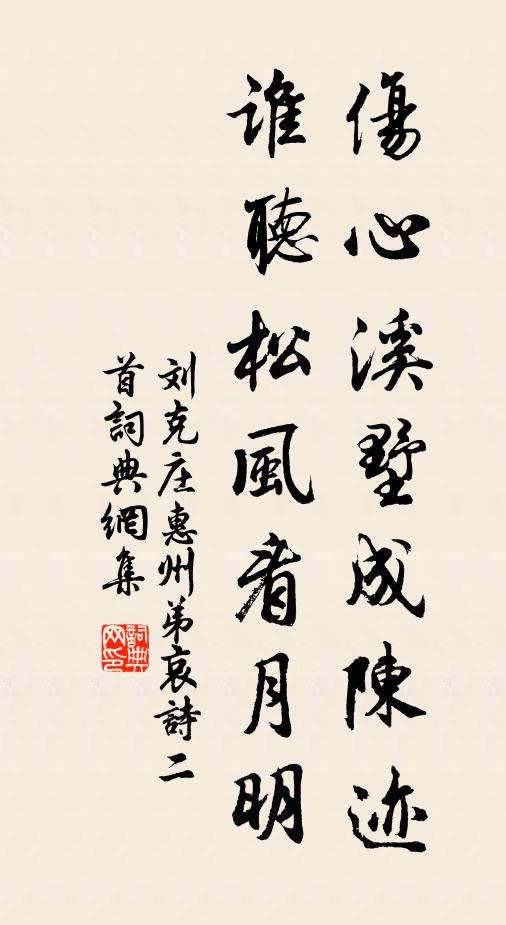 傷心溪墅成陳迹
誰聽松風看月明
刘克庄惠州弟哀詩二
首詞典網集
詞典
网印